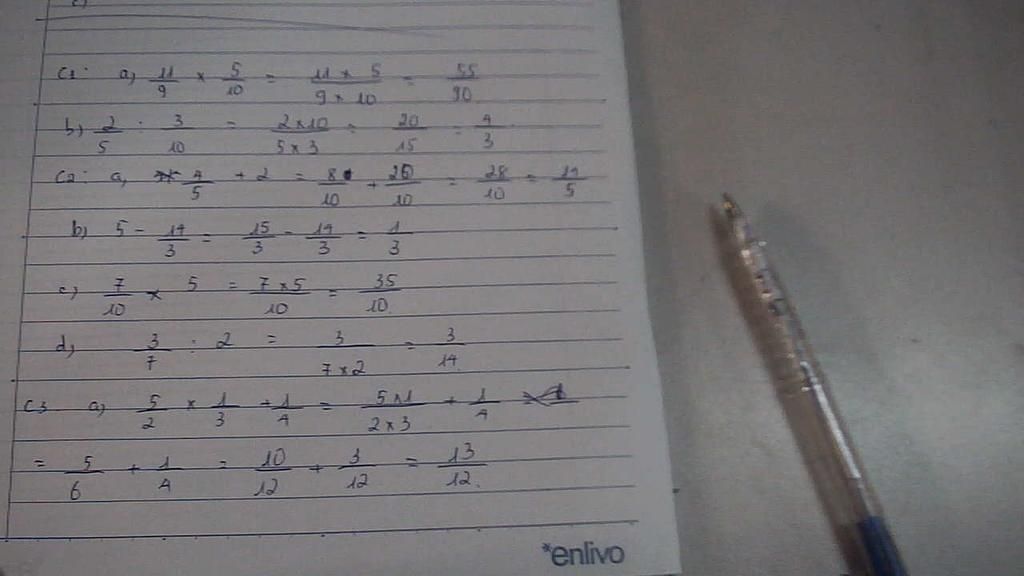 c)
C1: a, 11/9 × 5/10 = 11 × 5/9 × 10 = 55/90
b) 2/5 : 3/10 = 2×10/5×3 = 20/15 = 4/3
C2: a, 4/5 + 2 = 8/10 + 20/10 = 28/10 = 14/5
b) 5 - 14/3 = 15/3 - 14/3 = 1/3
c) 7/10 × 5 = 7×5/10 = 35/10.
d, 3/7 : 2 = 3/7×2 = 3/14
C3 a) 5/2 × 1/3 + 1/4 = 5×1/2×3 + 1/4
= 5/6 + 1/4 = 10/12 + 3/12 = 13/12.
*enlivo